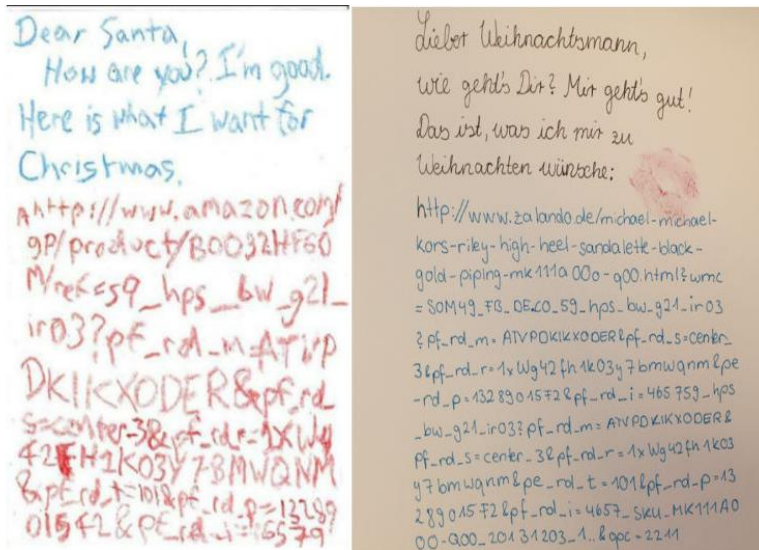 Dear Santa,
How are you? I'm good.
Here is what I want for
Christmas.
http://www.amazon.com/
gp/product/B0032HF60
M/ref=s9_hps_bw_g21_
ir03?pf_rd_m=ATVP
DKIKX0DER&pf_rd_
s=center-3&pf_rd_r=1XW9
42FH1K03Y78MWQNM
&pf_rd_t=101&pf_rd_p=13289
01542&pf_rd_i=
Lieber Weihnachtsmann,
wie geht's Dir? Mir geht's gut!
Das ist, was ich mir zu
Weihnachten wünsche:
http://www.zalando.de/michael-michael-
kors-riley-high-heel-sandalette-black-
gold-piping-mk111a00o-q00.html?wmc
=SOM49_FB_DE.CO_59_hps_bw_g21_ir03
?pf_rd_m=ATVPDKIKXODER&pf_rd_s=center_
3&pf_rd_r=1xWg42fh1k03y7bmwqnm&pe
-rd_p=1328901572&pf_rd_i=465759_hps
_bw_g21_ir03?pf_rd_m=ATVPDKIKXODER&
pf_rd_s=center_3&pf_rd_r=1xWg42fh1k03
y7bmwqnm&pe_rd_t=101&pf_rd_p=13
28901572&pf_rd_i=4657_SKU_MK111A0
00-Q00_20131203_1..&opc=2211